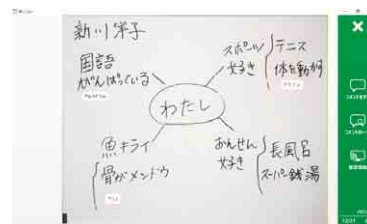 新川洋子
国語
がんばっている
スポーツ
好き
テニス
体を動かす
わたし
魚キライ
骨がメンドウ
おんせん
好き
長風呂
スーパー銭湯